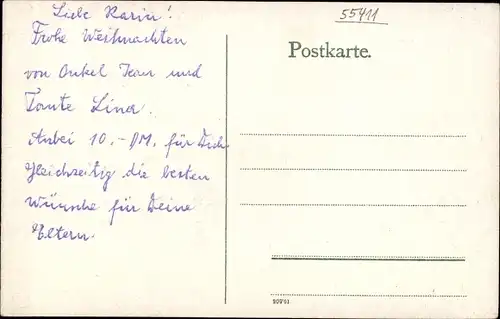 Liebe Karin!
Frohe Weihnachten
von Onkel Jean und
Tante Lina.
Anbei 10.-DM. für Dich
Gleichzeitig die besten
Wünsche für Deine
Eltern.
55411
Postkarte.